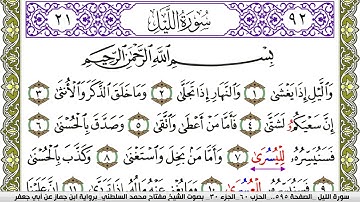 ٩٢ سُورَةُ اللَّيْلِ ٢١
بِسْمِ اللَّهِ الرَّحْمَٰنِ الرَّحِيمِ
وَالَّيْلِ إِذَا يَغْشَىٰ ١ وَالنَّهَارِ إِذَا تَجَلَّىٰ ٢ وَمَا خَلَقَ الذَّكَرَ وَالْأُنثَىٰ ٣
إِنَّ سَعْيَكُمُۥ لَشَتَّىٰ ٤ فَأَمَّا مَنْ أَعْطَىٰ وَاتَّقَىٰ ٥ وَصَدَّقَ بِالْحُسْنَىٰ ٦
فَسَنُيَسِّرُهُۥ لِلْيُسُرَىٰ ٧ وَأَمَّا مَنۢ بَخِلَ وَاسْتَغْنَىٰ ٨ وَكَذَّبَ بِالْحُسْنَىٰ ٩
سورة الليل الصفحة ٥٩٥... الحزب ٦٠ الجزء ٣٠.. بصوت الشيخ مفتاح محمد السلطني برواية ابن جماز عن أبي جعفر